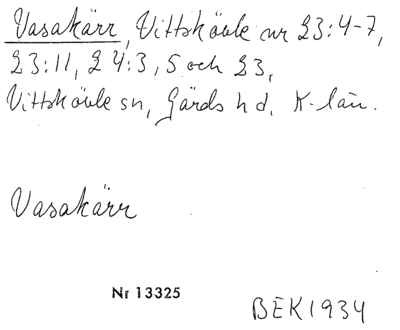 Vasakärr, Vittskövle nr 23:4-7,
23:11, 24:3, 5 och 23,
Vittskövle sn, Gärds hd. K-län.
Vasakärr
Nr 13325
BEK1934